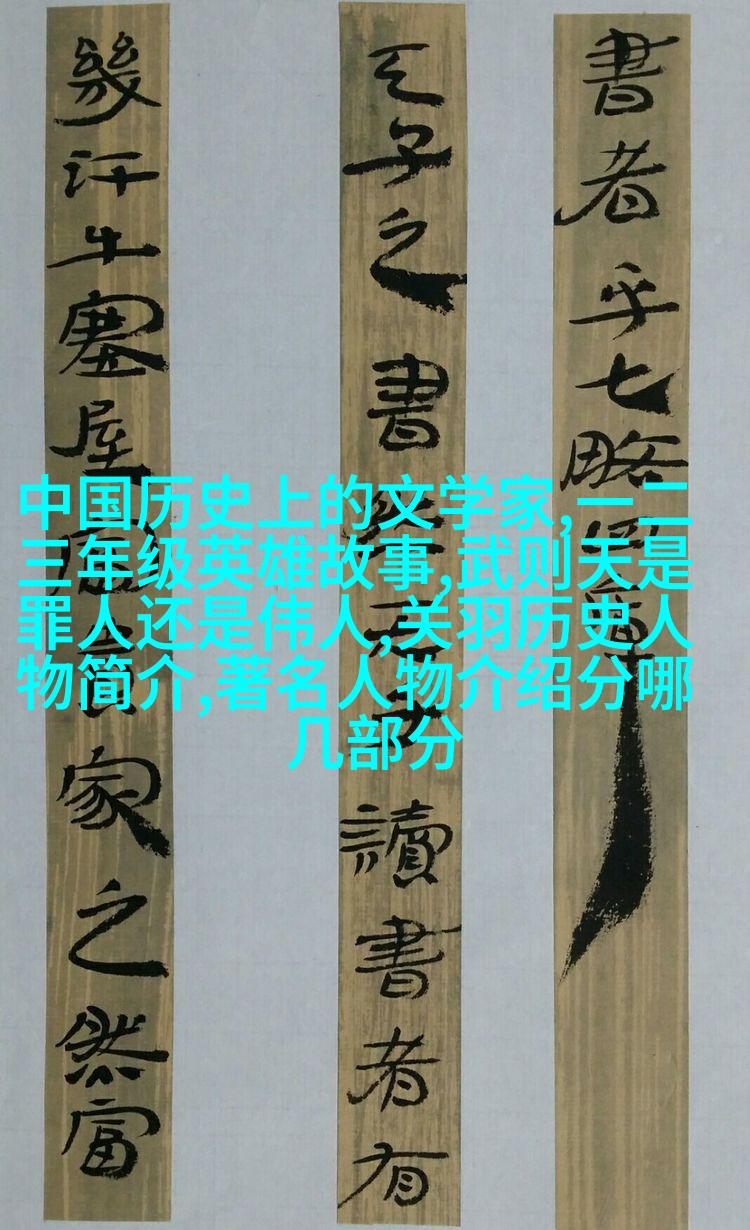 書者乎七略四庫
天子之書然天子讀書者有
幾汗牛塞屋富貴家之然富
中国历史上的文学家,一二
三年级英雄故事,武则天是
罪人还是伟人,关羽历史人
物简介,著名人物介绍分哪
几部分